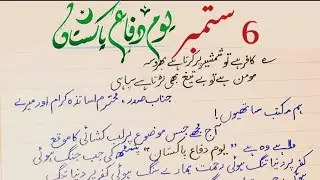 6 ستمبر یوم دفاع پاکستان
ے کافر ہے تو شمشیر پہ کرتا ہے بھروسہ
مومن ہے تو بے تیغ بھی لڑتا ہے سپاہی
جناب صدر، محترم اساتذہ کرام اور میرے
ہم مکتب ساتھیوں!
آج مجھے جس موضوع پر لب کشائی کا موقع
ملا ہے وہ ہے "یوم دفاع پاکستان"
کفر پر دنیا تنگ ہوئی